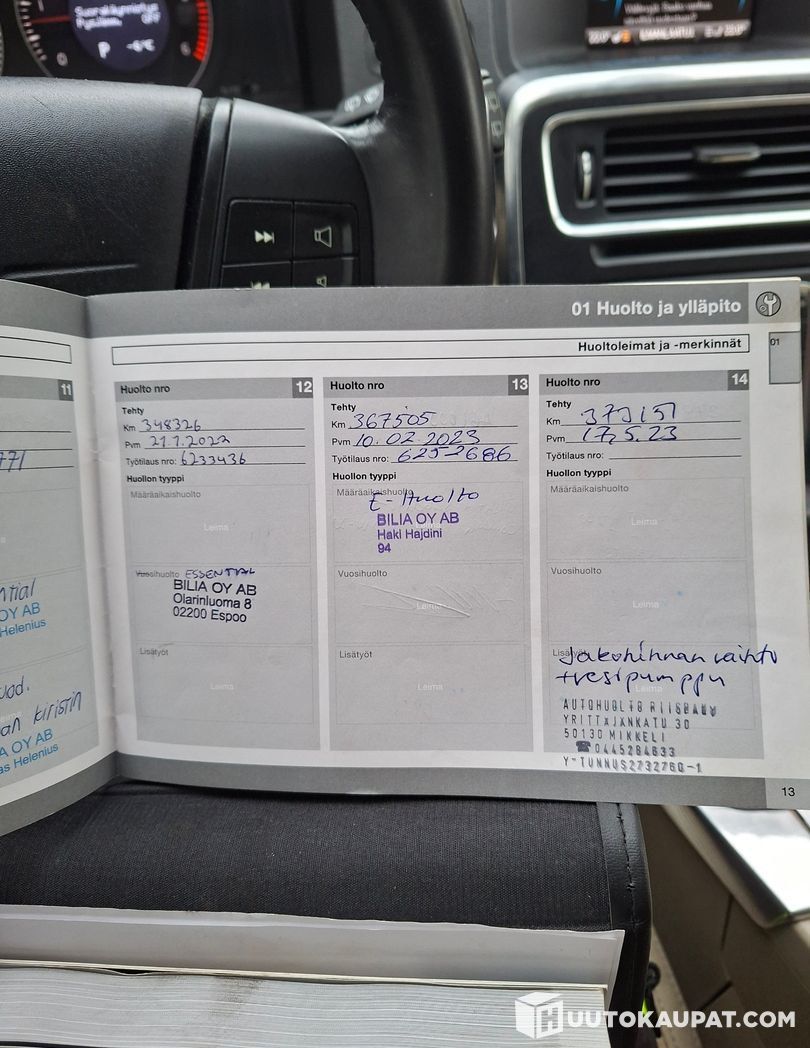 Suora käynnistys
OFF
P -4°C
01 Huolto ja ylläpito
Huoltoleimat ja -merkinnät
01
11
771
OY AB
Helenius
an kiristin
OY AB
as Helenius
Huolto nro 12
Tehty
Km 348326
Pvm 21.7.2022
Työtilaus nro: 6233436
Huollon tyyppi
Määräaikaishuolto
Leima
Vuosihuolto ESSENTIAL
BILIA OY AB
Olarinluoma 8
02200 Espoo
Lisätyöt
Leima
Huolto nro 13
Tehty
Km 367505
Pvm 10.02.2023
Työtilaus nro: 6252686
Huollon tyyppi
Määräaikaishuolto
E-Huolto
BILIA OY AB
Haki Hajdini
94
Vuosihuolto
Leima
Lisätyöt
Leima
Huolto nro 14
Tehty
Km 373151
Pvm 17.5.23
Työtilaus nro:
Huollon tyyppi
Määräaikaishuolto
Leima
Vuosihuolto
Leima
Lisätyöt
Jakohihnan vaihto
+vesipumppu
Leima
AUTOHUOLTO
YRITTÄJÄNKATU 30
50130 MIKKELI
☎0445284633
Y-TUNNUS2732760-1
13
HUUTOKAUPAT.COM